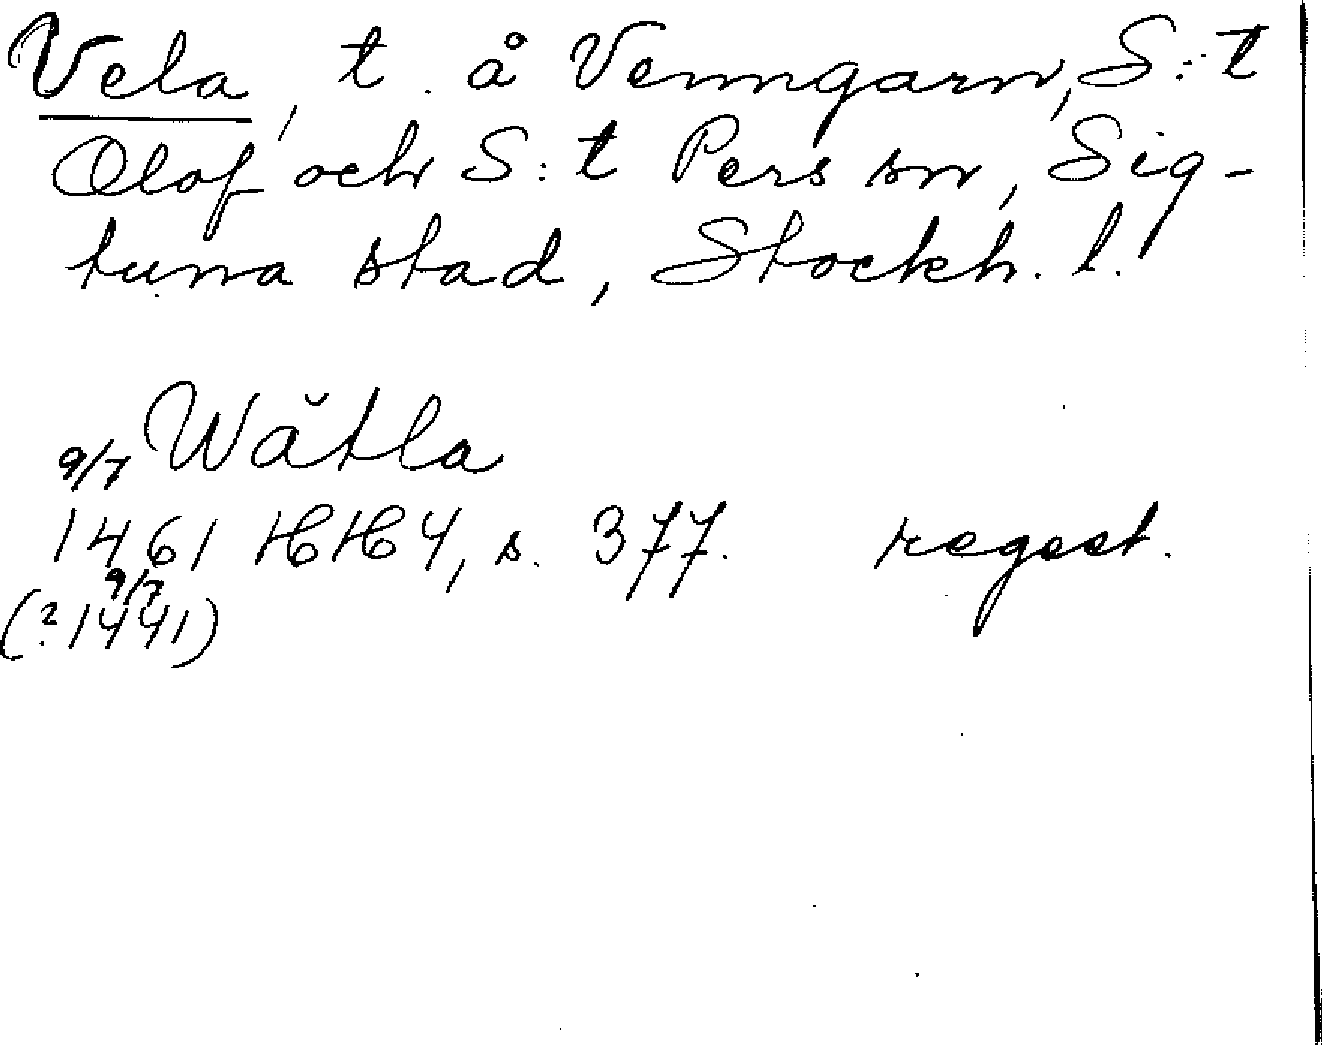 Vela, t. å Venngarn, S:t
Olof och S:t Pers sn, Sig-
tuna stad, Stockh. l.
Wǎtla
9/7
1461 HH 4, s. 377. regest.
9/7
(? 1441)